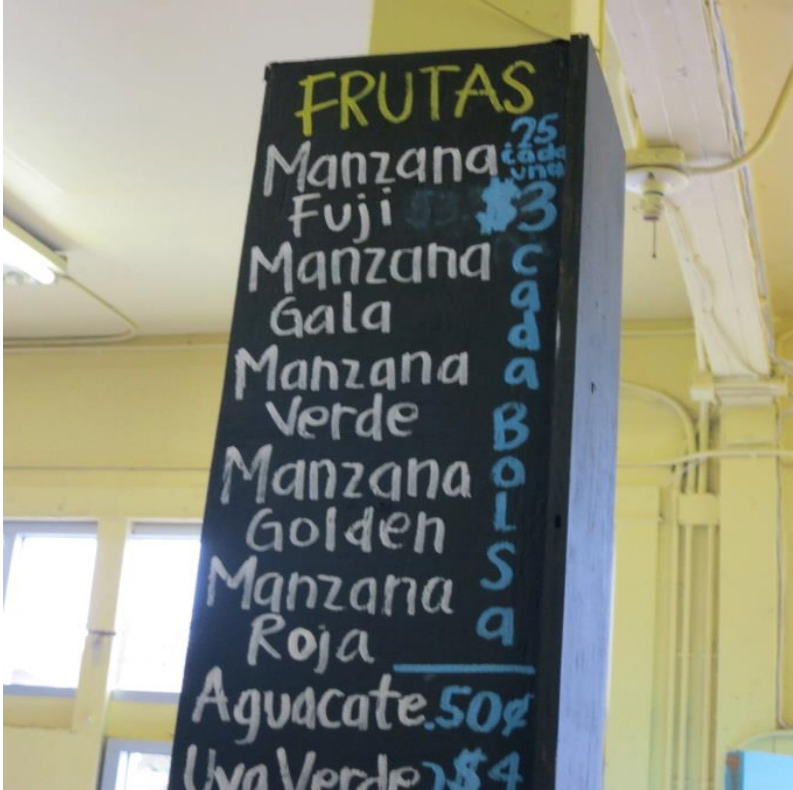 FRUTAS
Manzana 25 cada una
Fuji $3
Manzana
Gala
Manzana
Verde
Manzana
Golden
Manzana
Roja
cada Bolsa
Aguacate .50¢
Uva Verde $4